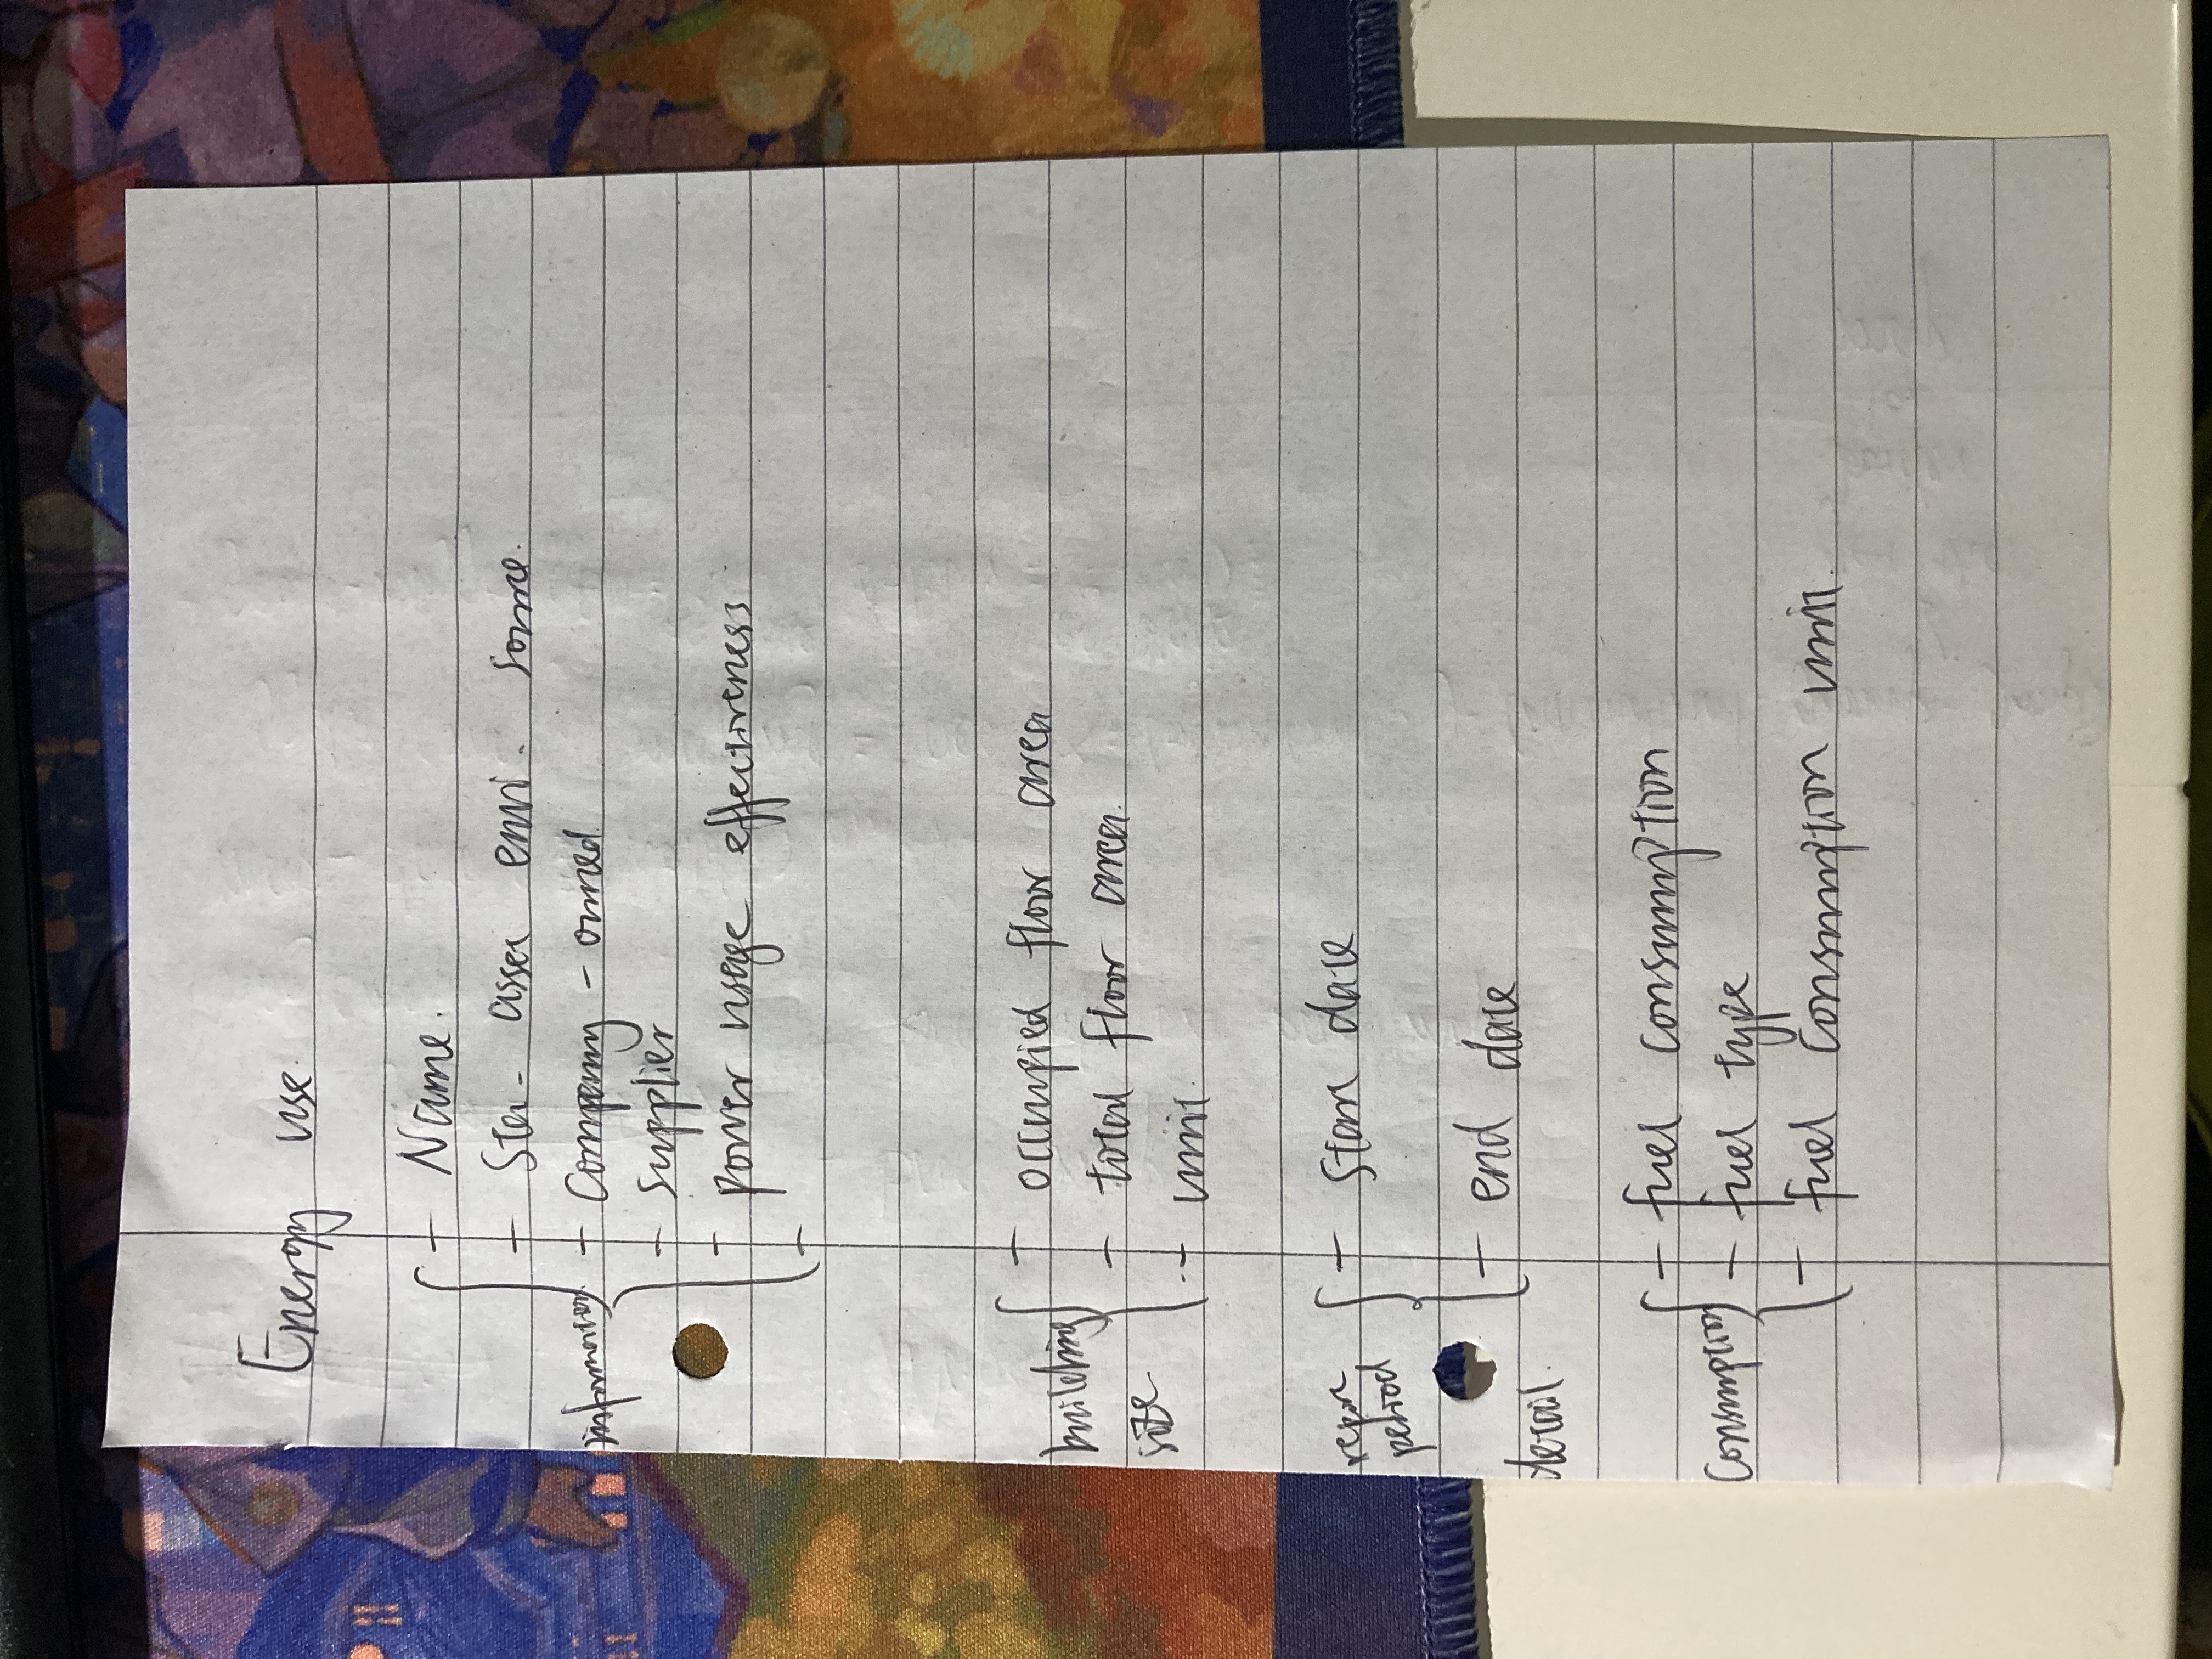 Energy use.
information
- Name.
- Sta- asset envi. source.
- Company-owned
- supplier
- power usage effectiveness
-
building size
- occupied floor area
- total floor area.
- unit.
report period
- start date
- end date
detail.
Consumption
- fuel consumption
- fuel type
- fuel consumption unit.